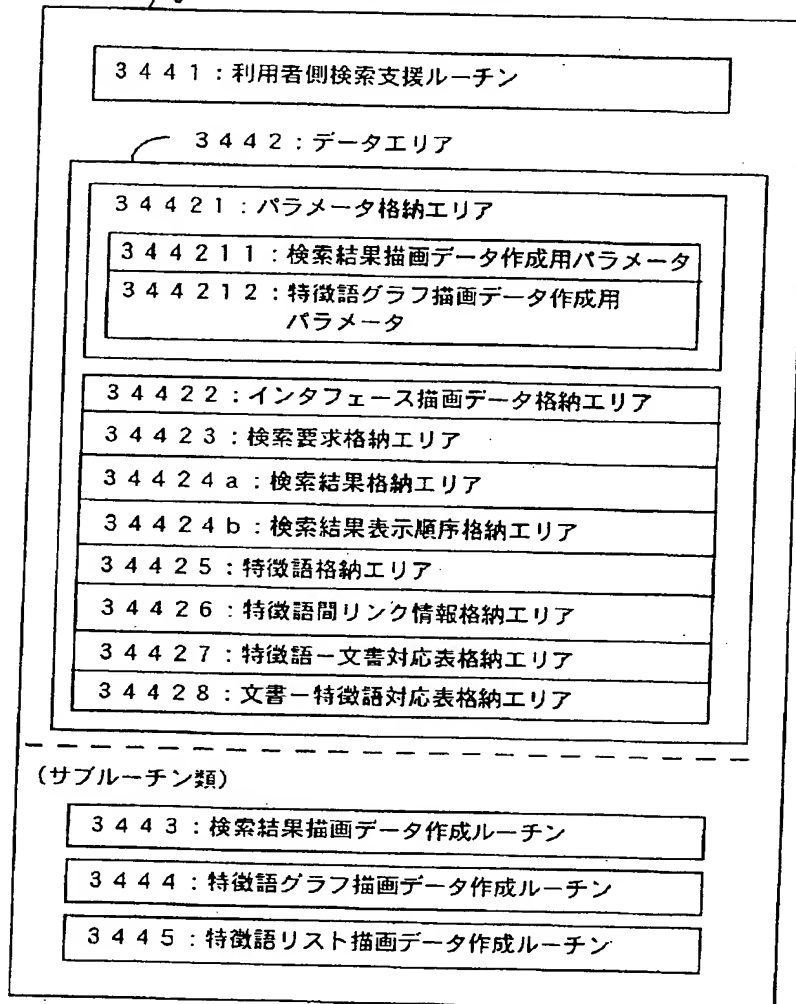 3441:利用者側検索支援ルーチン
3442:データエリア
34421:パラメータ格納エリア
344211:検索結果描画データ作成用パラメータ
344212:特徴語グラフ描画データ作成用
パラメータ
34422:インタフェース描画データ格納エリア
34423:検索要求格納エリア
34424a:検索結果格納エリア
34424b:検索結果表示順序格納エリア
34425:特徴語格納エリア
34426:特徴語間リンク情報格納エリア
34427:特徴語ー文書対応表格納エリア
34428:文書ー特徴語対応表格納エリア
(サブルーチン類)
3443:検索結果描画データ作成ルーチン
3444:特徴語グラフ描画データ作成ルーチン
3445:特徴語リスト描画データ作成ルーチン